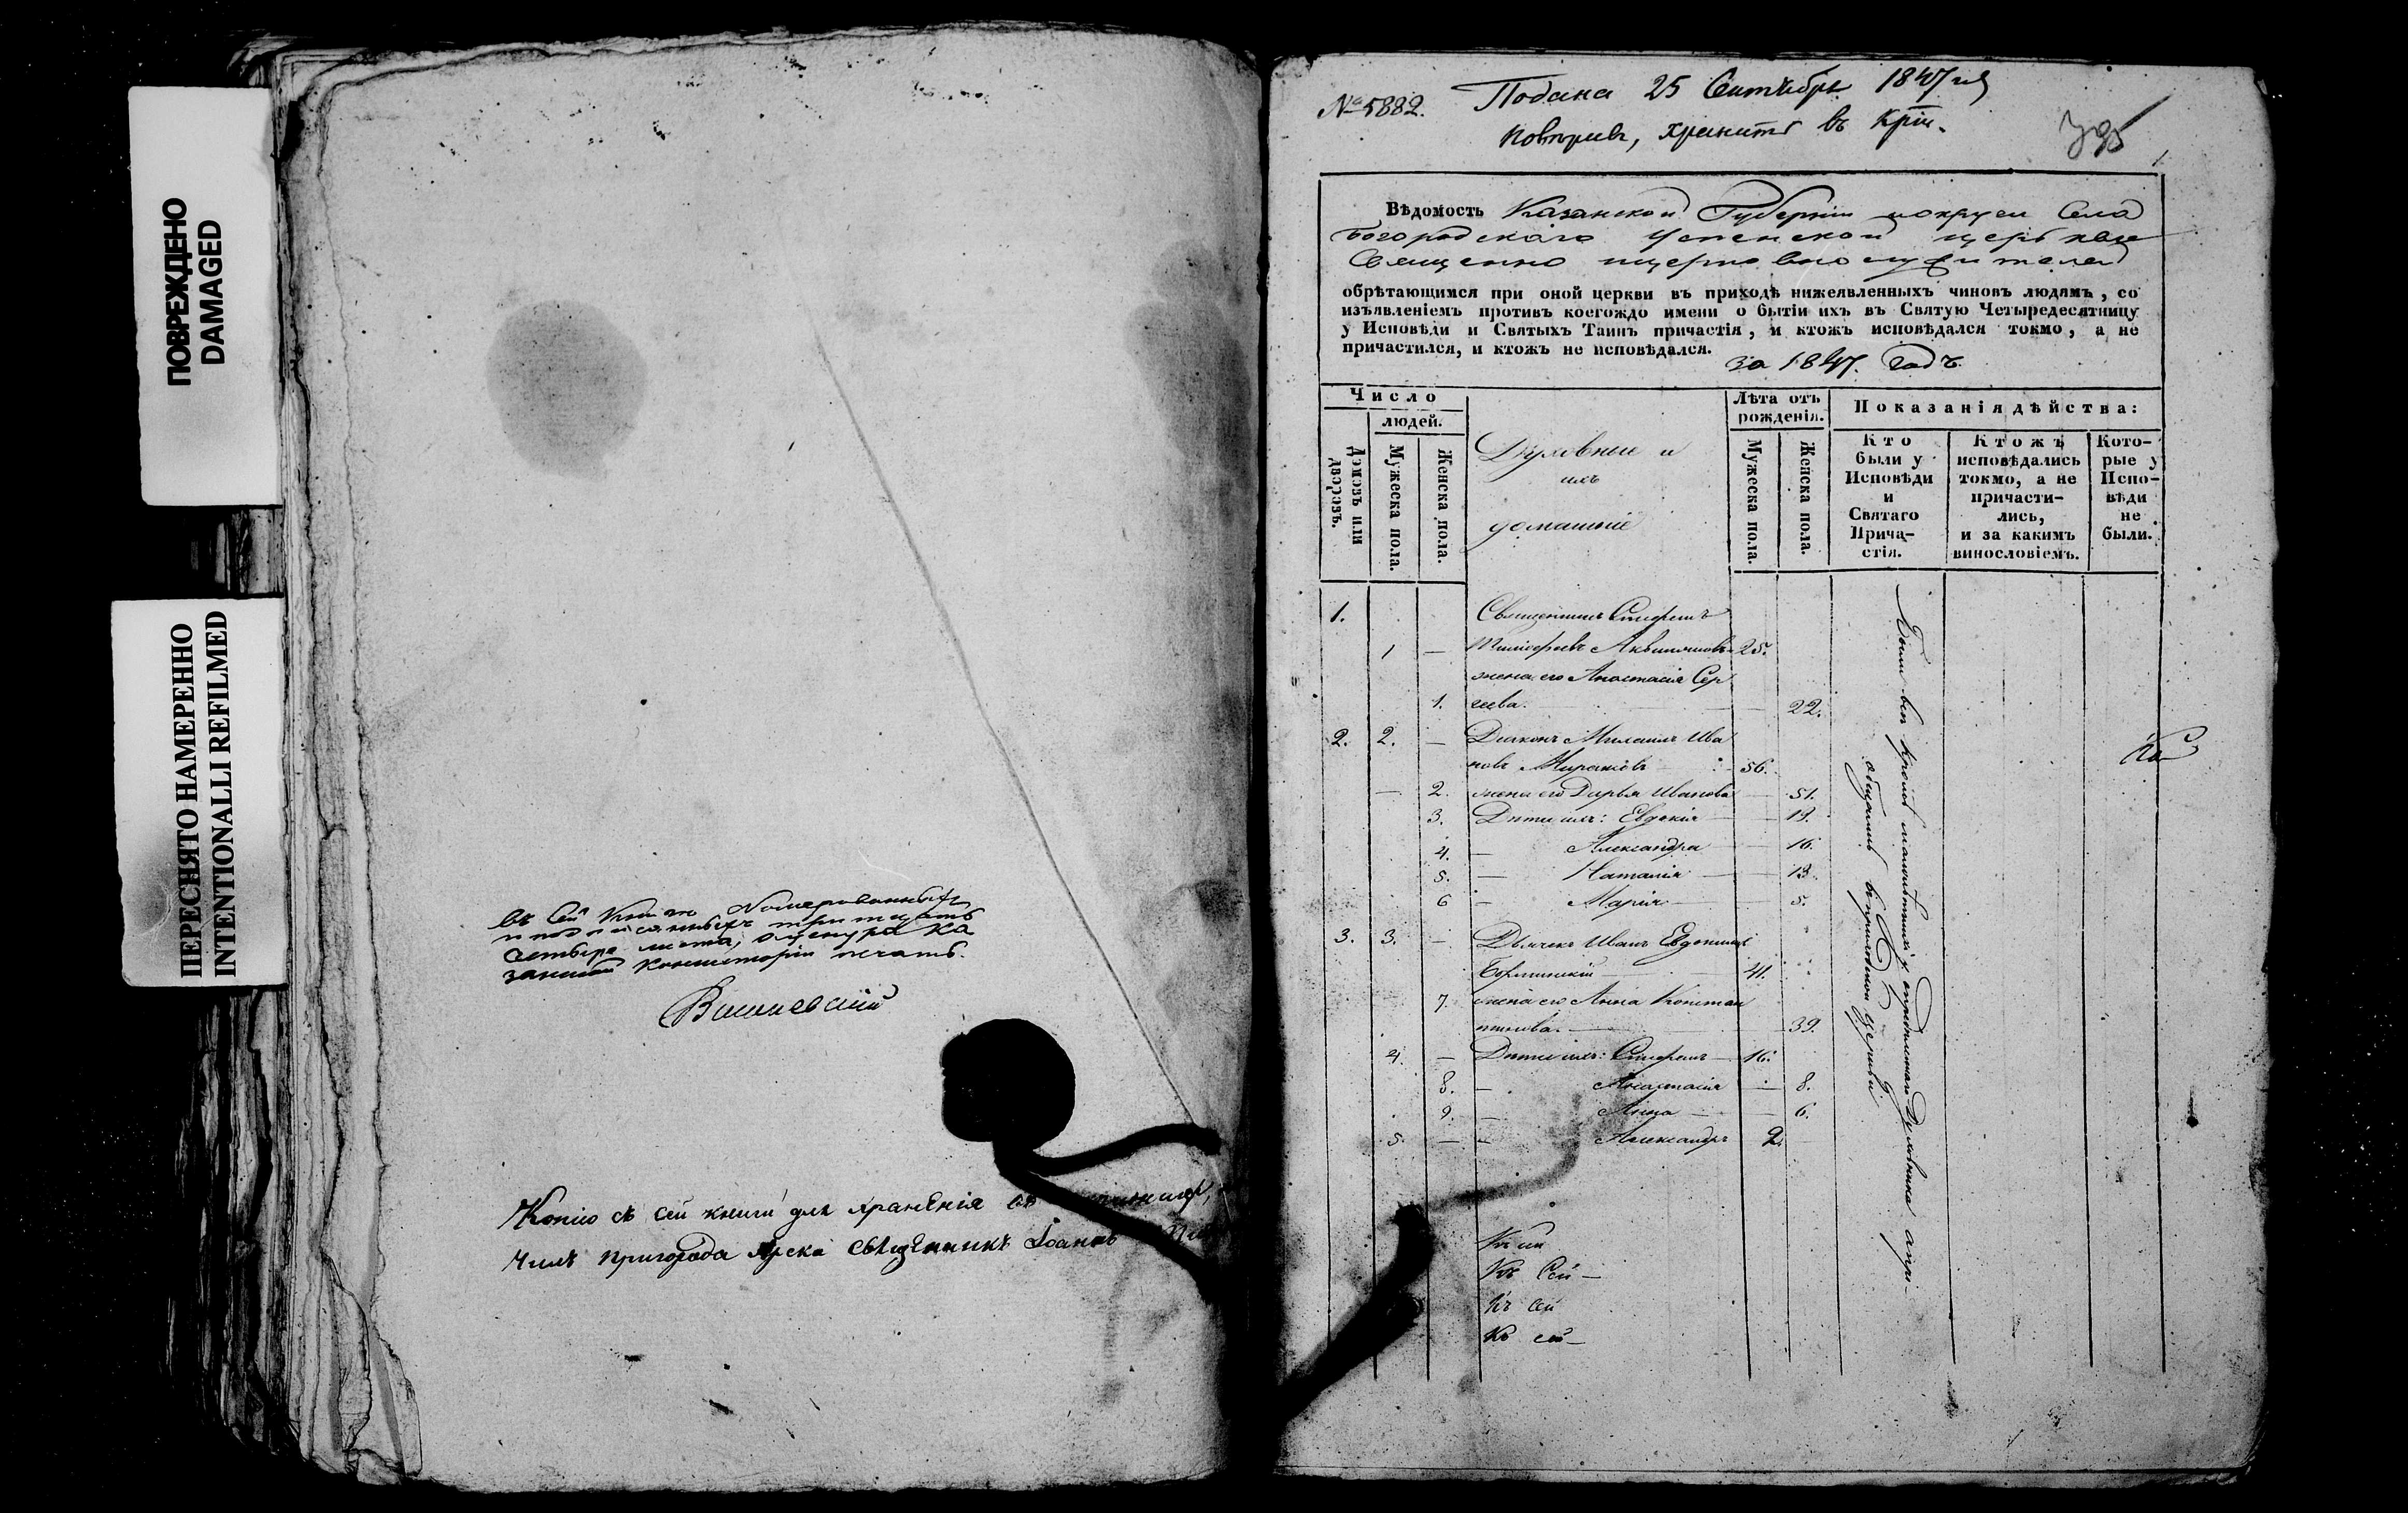 ПОВРЕЖДЕНО
DAMAGED
ПЕРЕСНЯТО НАМЕРЕННО
INTENTIONALLI REFILMED
Въ сей книгѣ номерованныхъ
и подписанныхъ тритцать
четыре листа,
Консисторіи печать.
Вишневскій
Копію съ сей книги для храненія
пригорода Арска священникъ Іоаннъ
№ 5882. Подана 25 Сентября 1847 г.
хранить въ
1
Вѣдомость Казанской Губерніи и округи Села
Богородскаго Успенской церькви
Священно и церковнослужителей
обрѣтающимся при оной церкви въ приходѣ нижеявленныхъ чиновъ людямъ, со
изъявленіемъ противъ коегождо имени о бытіи ихъ въ Святую Четыредесятницу
у Исповѣди и Святыхъ Таинъ причастія, и ктожъ исповѣдался токмо, а не
причастился, и ктожъ не исповѣдался.
за 1847. годъ.
Число
людей.
Домовъ или дворовъ.
Мужеска пола.
Женска пола.
Духовные и
ихъ
домашніе
Лѣта отъ
рожденія.
Мужеска пола.
Женска пола.
Показанія дѣйства:
Кто
были у
Исповѣди
и
Святаго
Прича-
стія.
Ктожъ
исповѣдались
токмо, а не
причасти-
лись,
и за какимъ
винословіемъ.
Кото-
рые у
Испо-
вѣди
не
были.
1. Священникъ Стефанъ
1 — Тимофеевъ 25.
жена его Анастасія Сер
1. геева. 22.
2. 2. — Діаконъ Михаилъ Ива
новъ 56.
— 2. жена его Дарья Иванова 51.
3. Дѣти ихъ: Евдокія 19.
4. — Александра 16.
5. — Наталія 13.
6 — Марія 5.
3. 3. — Дьячекъ Иванъ
41.
7. жена его Анна Констан
тинова. 39.
4. — Дѣти ихъ: Стефанъ 16.
8. — Анастасія 8.
9. — Анна 6.
5. — — Александръ 2.
Были всѣ кромѣ малолѣтнихъ у опредѣленнаго Духовника
въ приходской церькви
Къ сей —
Къ сей
Къ сей —